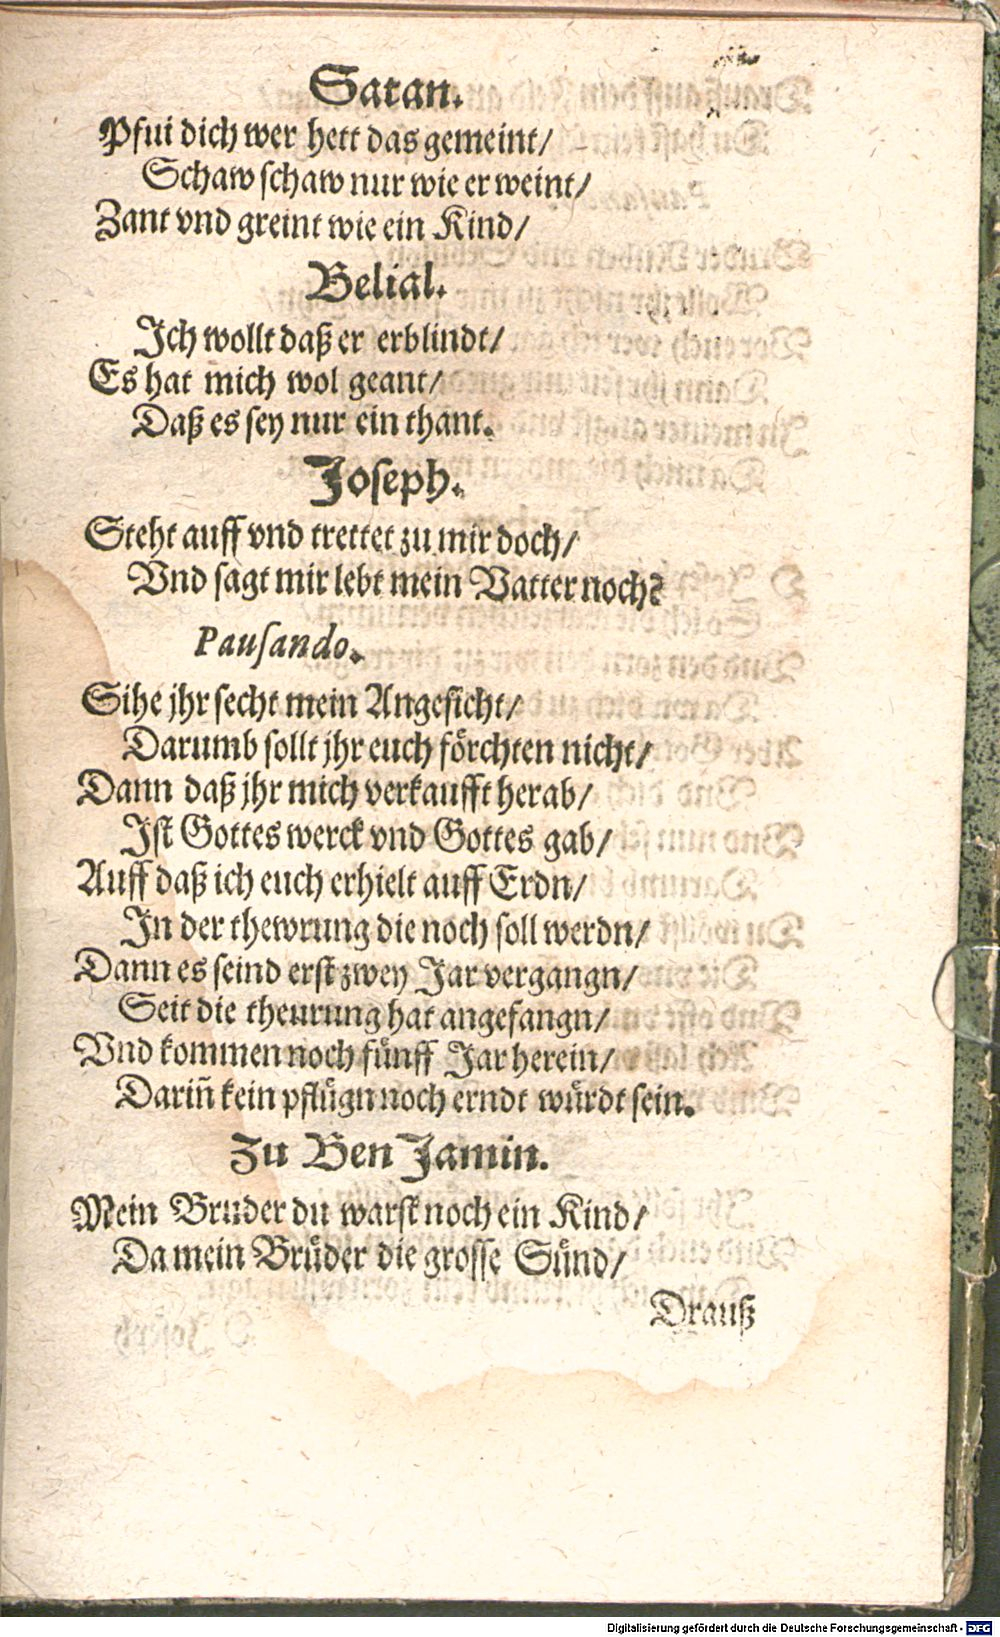 Satan.
Pfui dich wer hett das gemeint/
Schaw schaw nur wie er weint/
Zant vnd greint wie ein Kind/
Belial.
Ich wollt daß er erblindt/
Es hat mich wol geant/
Daß es sey nur ein thant.
Joseph.
Steht auff vnd trettet zu mir doch/
Vnd sagt mir lebt mein Vatter noch?
Pausando.
Sihe jhr secht mein Angesicht/
Darumb sollt jhr euch förchten nicht/
Dann daß jhr mich verkaufft herab/
Ist Gottes werck vnd Gottes gab/
Auff daß ich euch erhielt auff Erdn/
In der thewrung die noch soll werdn/
Dann es seind erst zwey Jar vergangn/
Seit die theurung hat angefangn/
Vnd kommen noch fünff Jar herein/
Dariñ kein pflügn noch erndt würdt sein.
Zu Ben Jamin.
Mein Bruder du warst noch ein Kind/
Da mein Brüder die grosse Sünd/
Drauß
Digitalisierung gefördert durch die Deutsche Forschungsgemeinschaft - DFG